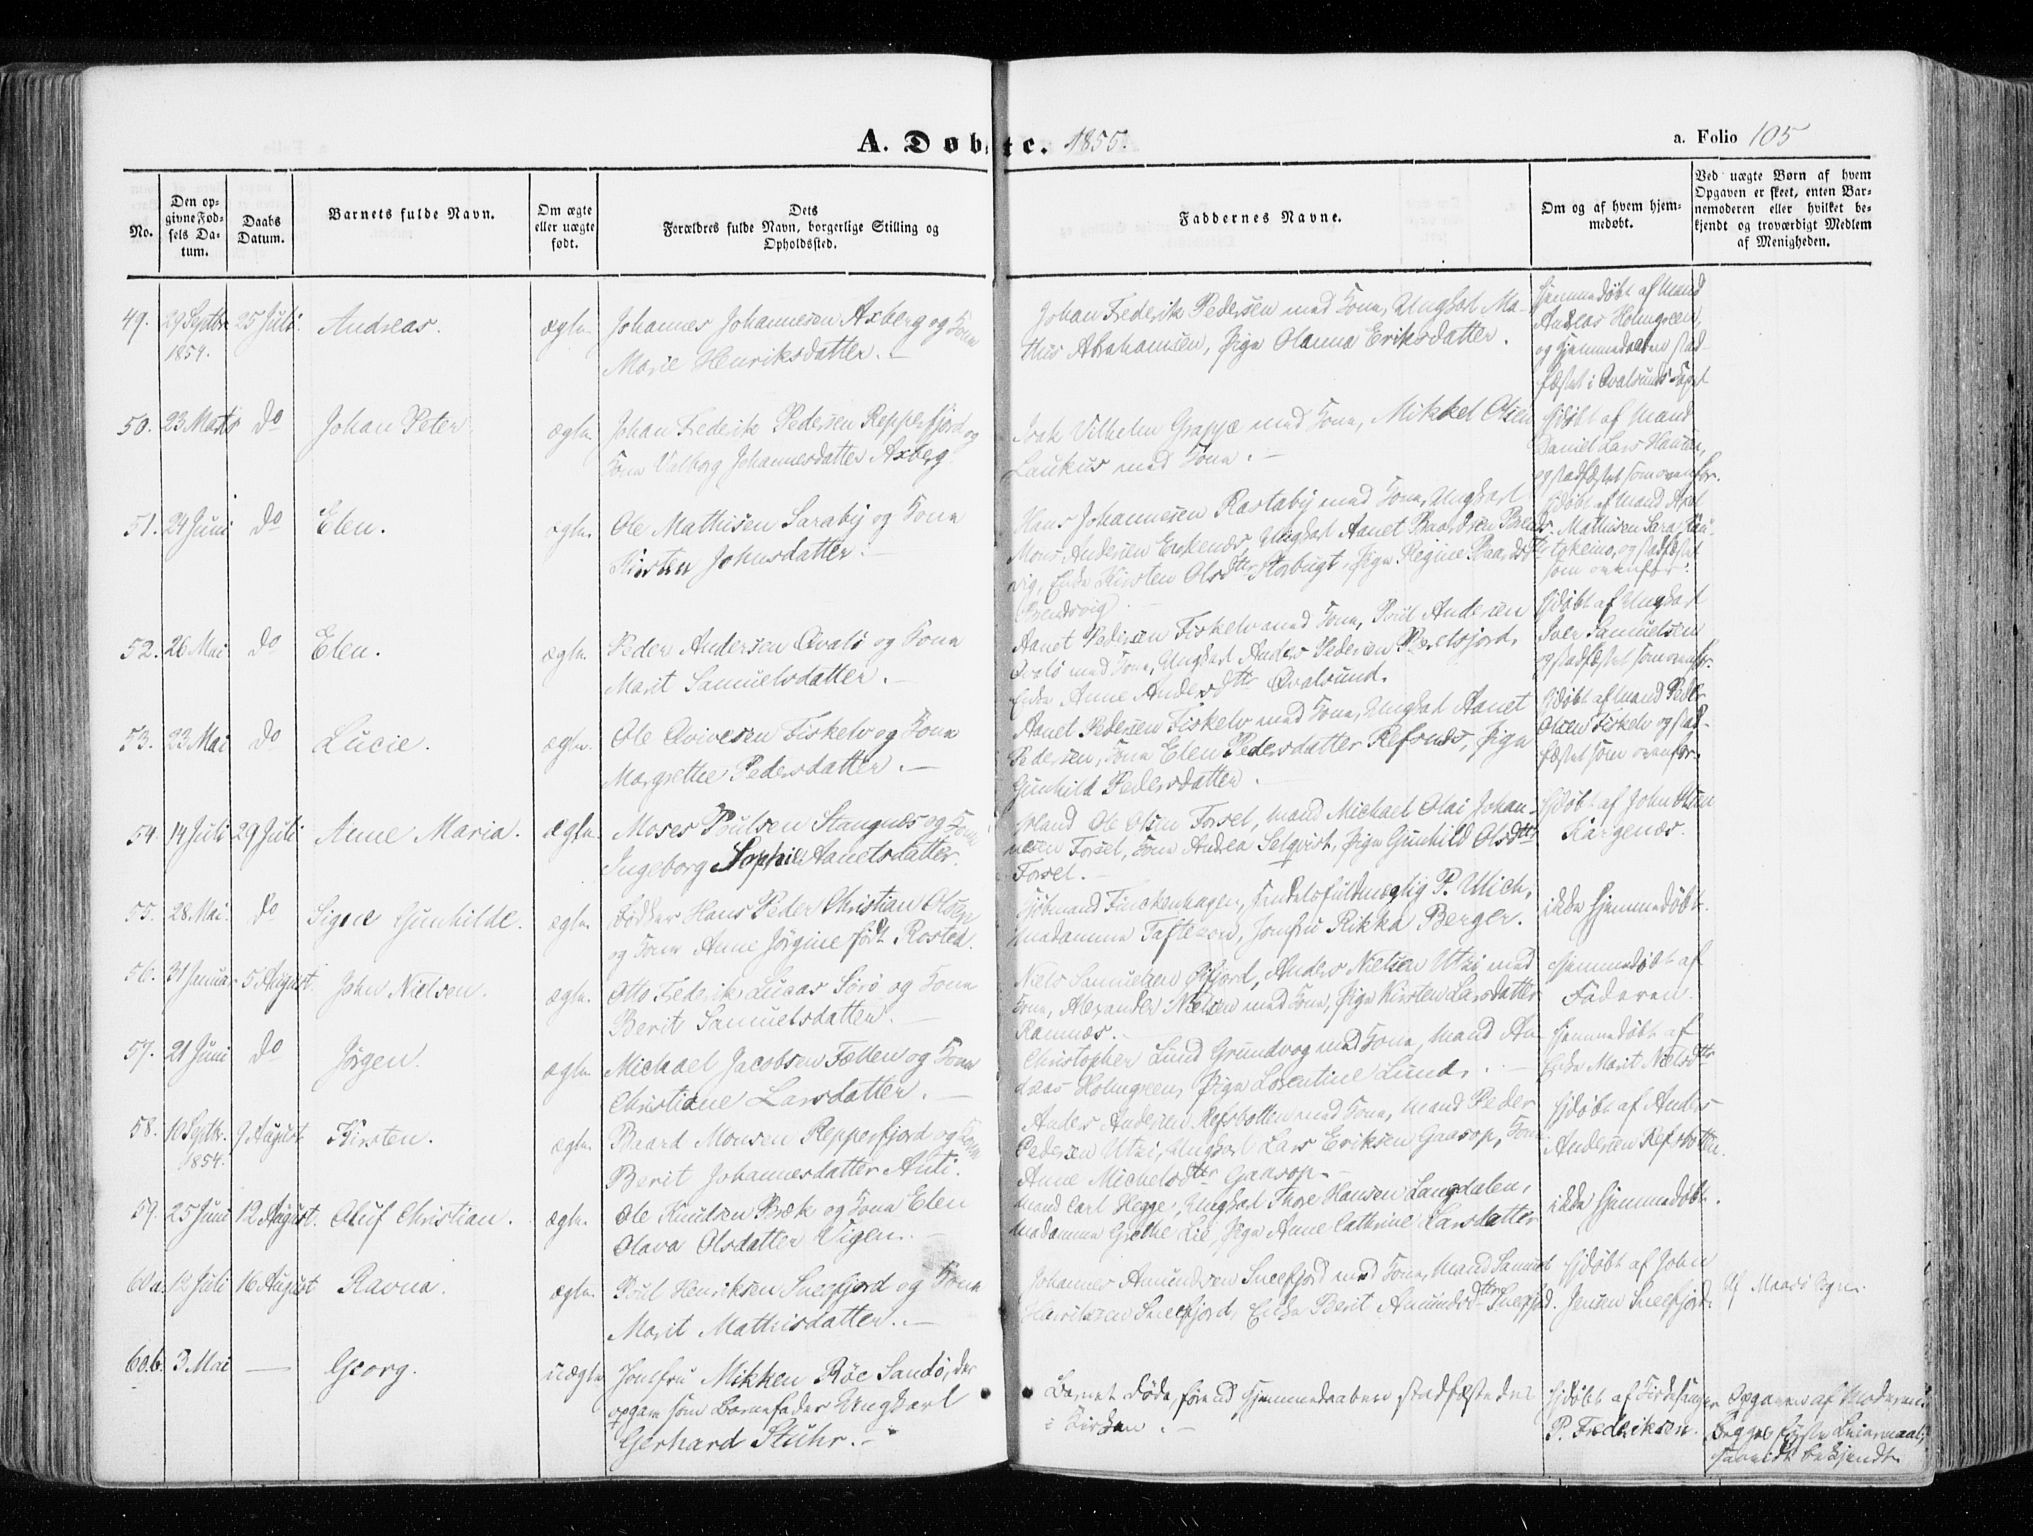 A. Døbte. 1855.
a. Folio 105
No.
Den op-
givne Fød-
sels Da-
tum.
Daabs
Datum.
Barnets fulde Navn.
Om ægte
eller uægte
født.
Dets
Forældres fulde Navn, borgerlige Stilling og
Opholdssted.
Faddernes Navne.
Om og af hvem hjem-
medøbt.
Ved uægte Børn af hvem
Opgaven er skeet, enten Bar-
nemoderen eller hvilket be-
kjendt og troværdigt Medlem
af Menigheden.
49. 29 Septbr 1854. 25 Juli. Andreas. ægte. Johannes Johannesen Axberg og Kone
Marie Henriksdatter. —
Johan Frederik Pedersen med Kone, Ungkarl Ma-
this Abrahamsen, Pige Olanna Eriksdatter.
Hjemmedøbt af Mand
Andreas Holmgreen,
og Hjemmedaaben stad-
fæstet i Qvalsunds Capel
50. 23 Marts do Johan Peter ægte. Johan Frederik Pedersen Repperfjord og
Kone Valborg Johannesdatter Axberg
Isak Vilhelm Grappe med Kone, Mikkel Olsen
Laukus med Kone. —
Hjdøbt af Mand
Daniel Lars Hansen,
og stadfæstet som ovenfor.
51. 24 Juni do Elen. ægte. Ole Mathisen Saraby og Kone
Kirsten Johnsdatter. —
Hans Johannesen Rastaby med Kone, Ungkarl
Mons Andersen Erskenæs, Ungkarl Aanet Baardsen Brends-
vig, Enke Kirsten Olsdtr Storbugt, Pige Regine Baardsdtr
(Brendsvig)
Hjdøbt af Mand Axel
Mathisen Sara Kau-
tokeino, og stadfæstet
som ovenfor.
52. 26 Mai do Elen. ægte. Peder Andersen Qvalø og Kone
Marit Samuelsdatter. —
Aanet Pedersen Fiskelv med Kone, Poul Andersen
Qvalø med Kone, Ungkarl Anders Pedersen Revsfjord,
Enke Anne Andersdtr Qvalsund.
Hjdøbt af Ungkarl
Iver Samuelsen
og stadfæstet som ovenfor.
53. 23 Mai do Lucie. ægte. Ole Qvivesen Fiskelv og Kone
Margrethe Pedersdatter. —
Aanet Pedersen Fiskelv med Kone, Ungkarl Aanet
Pedersen, Kone Elen Pedersdatter Refsnæs, Pige
Gunhild Pedersdatter. —
Hjdøbt af Mand Peder
Olsen Fiskelv og stad-
fæstet som ovenfor.
54. 14 Juli 29 Juli Anne Maria. ægte. Moses Poulsen Stangnæs og Kone
Ingeborg Sophie Aanetsdatter.
Mand Ole Olsen Forsøl, Mand Michael Olai Johan-
nesen Forsøl, Kone Andrea Selqvist, Pige Gunhild Olsdtr
Forsøl. —
Hjdøbt af John Olsen
Kargenæs.
55. 28 Mai. do Signe Gunhilde. ægte. Bødker Hans Peder Christian Olsen
og Kone Anne Jørgine født Rosted.
Kjøbmand Finckenhagen, Handelsfuldmægtig P. Ulich,
Madamme Taftezon, Jomfru Rikka Berger.
ikke hjemmedøbt.
56. 31 Januar 5 August. John Nielsen. ægte. Otto Frederik Lucas Sørø og Kone
Berit Samuelsdatter. —
Niels Samuelsen Øfjord, Anders Nielsen Utsi med
Kone, Alexander Nielsen med Kone, Pige Kirsten Larsdatter
Ramnæs. —
Hjemmedøbt af
Faderen.
57. 21 Juni do Jørgen. ægte. Michael Jacobsen Fætten og Kone
Christiane Larsdatter. —
Christopher Lund Grundvog med Kone, Mand An-
dreas Holmgreen, Pige Lorentine Lund. —
Hjemmedøbt af
Enke Marit Nielsdtr
58. 10 Septbr. 1854. 9 August Kirsten. ægte. Baard Monsen Repperfjord og Kone
Berit Johannesdatter Anti.
Anders Andersen Refsbotten med Kone, Mand Peder
Pedersen Utsi, Ungkarl Lars Eriksen Gaasop, Kone
Anne Michelsdtr Gaasop. —
Hjdøbt af Anders
Andersen Refsbotten.
59. 25 Juni 12 August. Oluf Christian. ægte. Ole Knudsen Bæk og Kone Elen
Olava Olsdatter Vigen. —
Mand Carl Hegge, Ungkarl Thore Hansen Langdalen,
Madamme Grethe Lie, Pige Anne Cathrine Larsdatter
ikke hjemmedøbt.
60a. 12 Juli 16 August Ravna. ægte. Poul Henriksen Sneefjord og Kone
Marit Mathisdatter. —
Johannes Amundsen Sneefjord med Kone, Mand Samuel
Henriksen Sneefjord, Enke Berit Amundsdtr Sneefjd.
Hjdøbt af John
Jensen Sneefjord.
Af Maasø Sogn.
60.b. 3 Mai — Georg. uægte Jomfru Mikken Røe Sandø, der
opgav som Barnefader Ungkarl
Gerhard Stuhr. —
Barnet døde, førend Hjemmedaaben stadfæstedes
i Kirken. —
Hjdøbt af Kirkesanger
P. Frederiksen.
Opgaven af Moderen.
Begges første Leiermaal,
saavidt bekjendt.